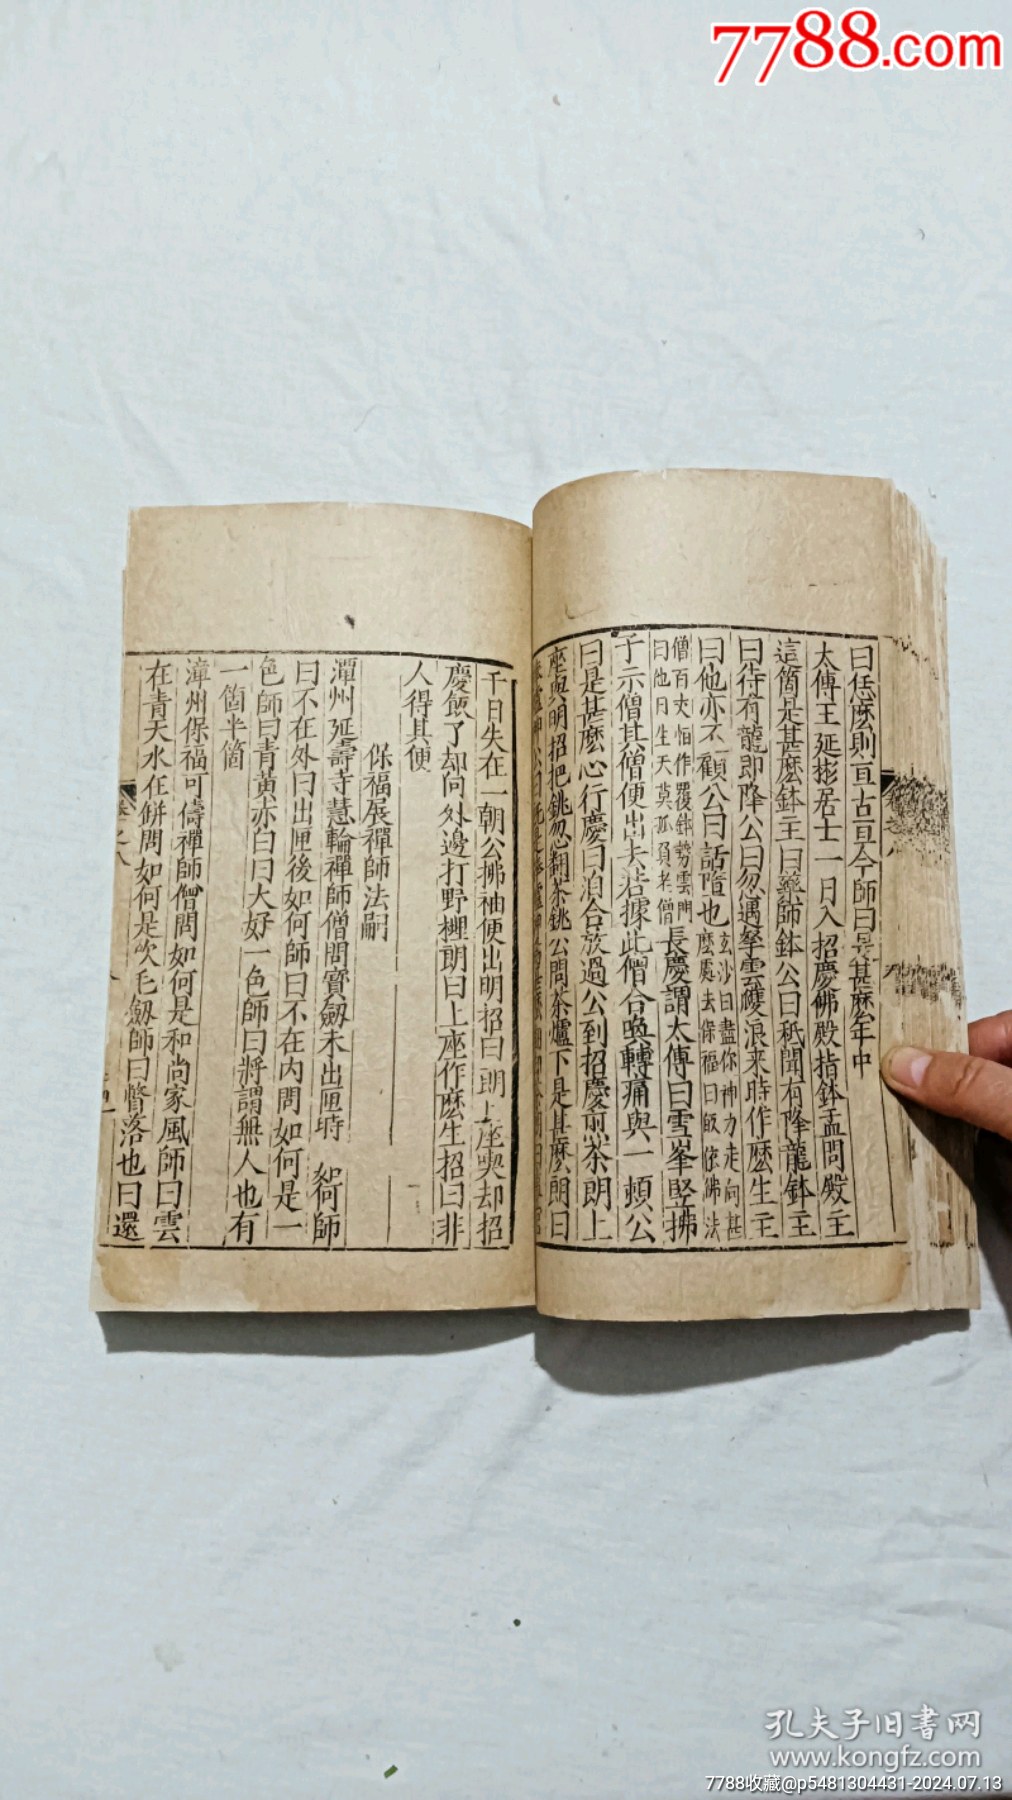 7788.com
曰恁麽則亘古亘今師曰是甚麽年中
太傅王延彬居士一日入招慶佛殿指鉢盂問殿主
這箇是甚麽鉢主曰藥師鉢公曰秪聞有降龍鉢主
曰待有龍即降公曰忽遇拏雲浪来時作麽生主
曰他亦不顧公曰話墮也玄沙曰盡你神力走向甚
麽處去保福曰皈依佛法
僧百丈恒作覆鉢勢雲門
曰他日生天莫孤負老僧長慶謂太傅曰雪峯竪拂
子示僧其僧便出去若據此僧合喚轉痛與一頓公
曰是甚麽心行慶曰洎合放過公到招慶煎茶朗上
座與明招把銚忽翻茶銚公問茶爐下是甚麽朗曰
千日失在一朝公拂袖便出明招曰朗上座喫却招
慶飯了却向外邊打野榸朗曰上座作麽生招曰非
人得其便
保福展禪師法嗣
潭州延壽寺慧輪禪師僧問寶劔未出匣時如何師
曰不在外曰出匣後如何師曰不在内問如何是一
色師曰青黃赤白曰大好一色師曰將謂無人也有
一箇半箇
漳州保福可儔禪師僧問如何是和尚家風師曰雲
在青天水在缾問如何是吹毛劔師曰瞥落也曰還
卷之八
孔夫子旧書网
www.kongfz.com
7788收藏@p5481304431-2024.07.13